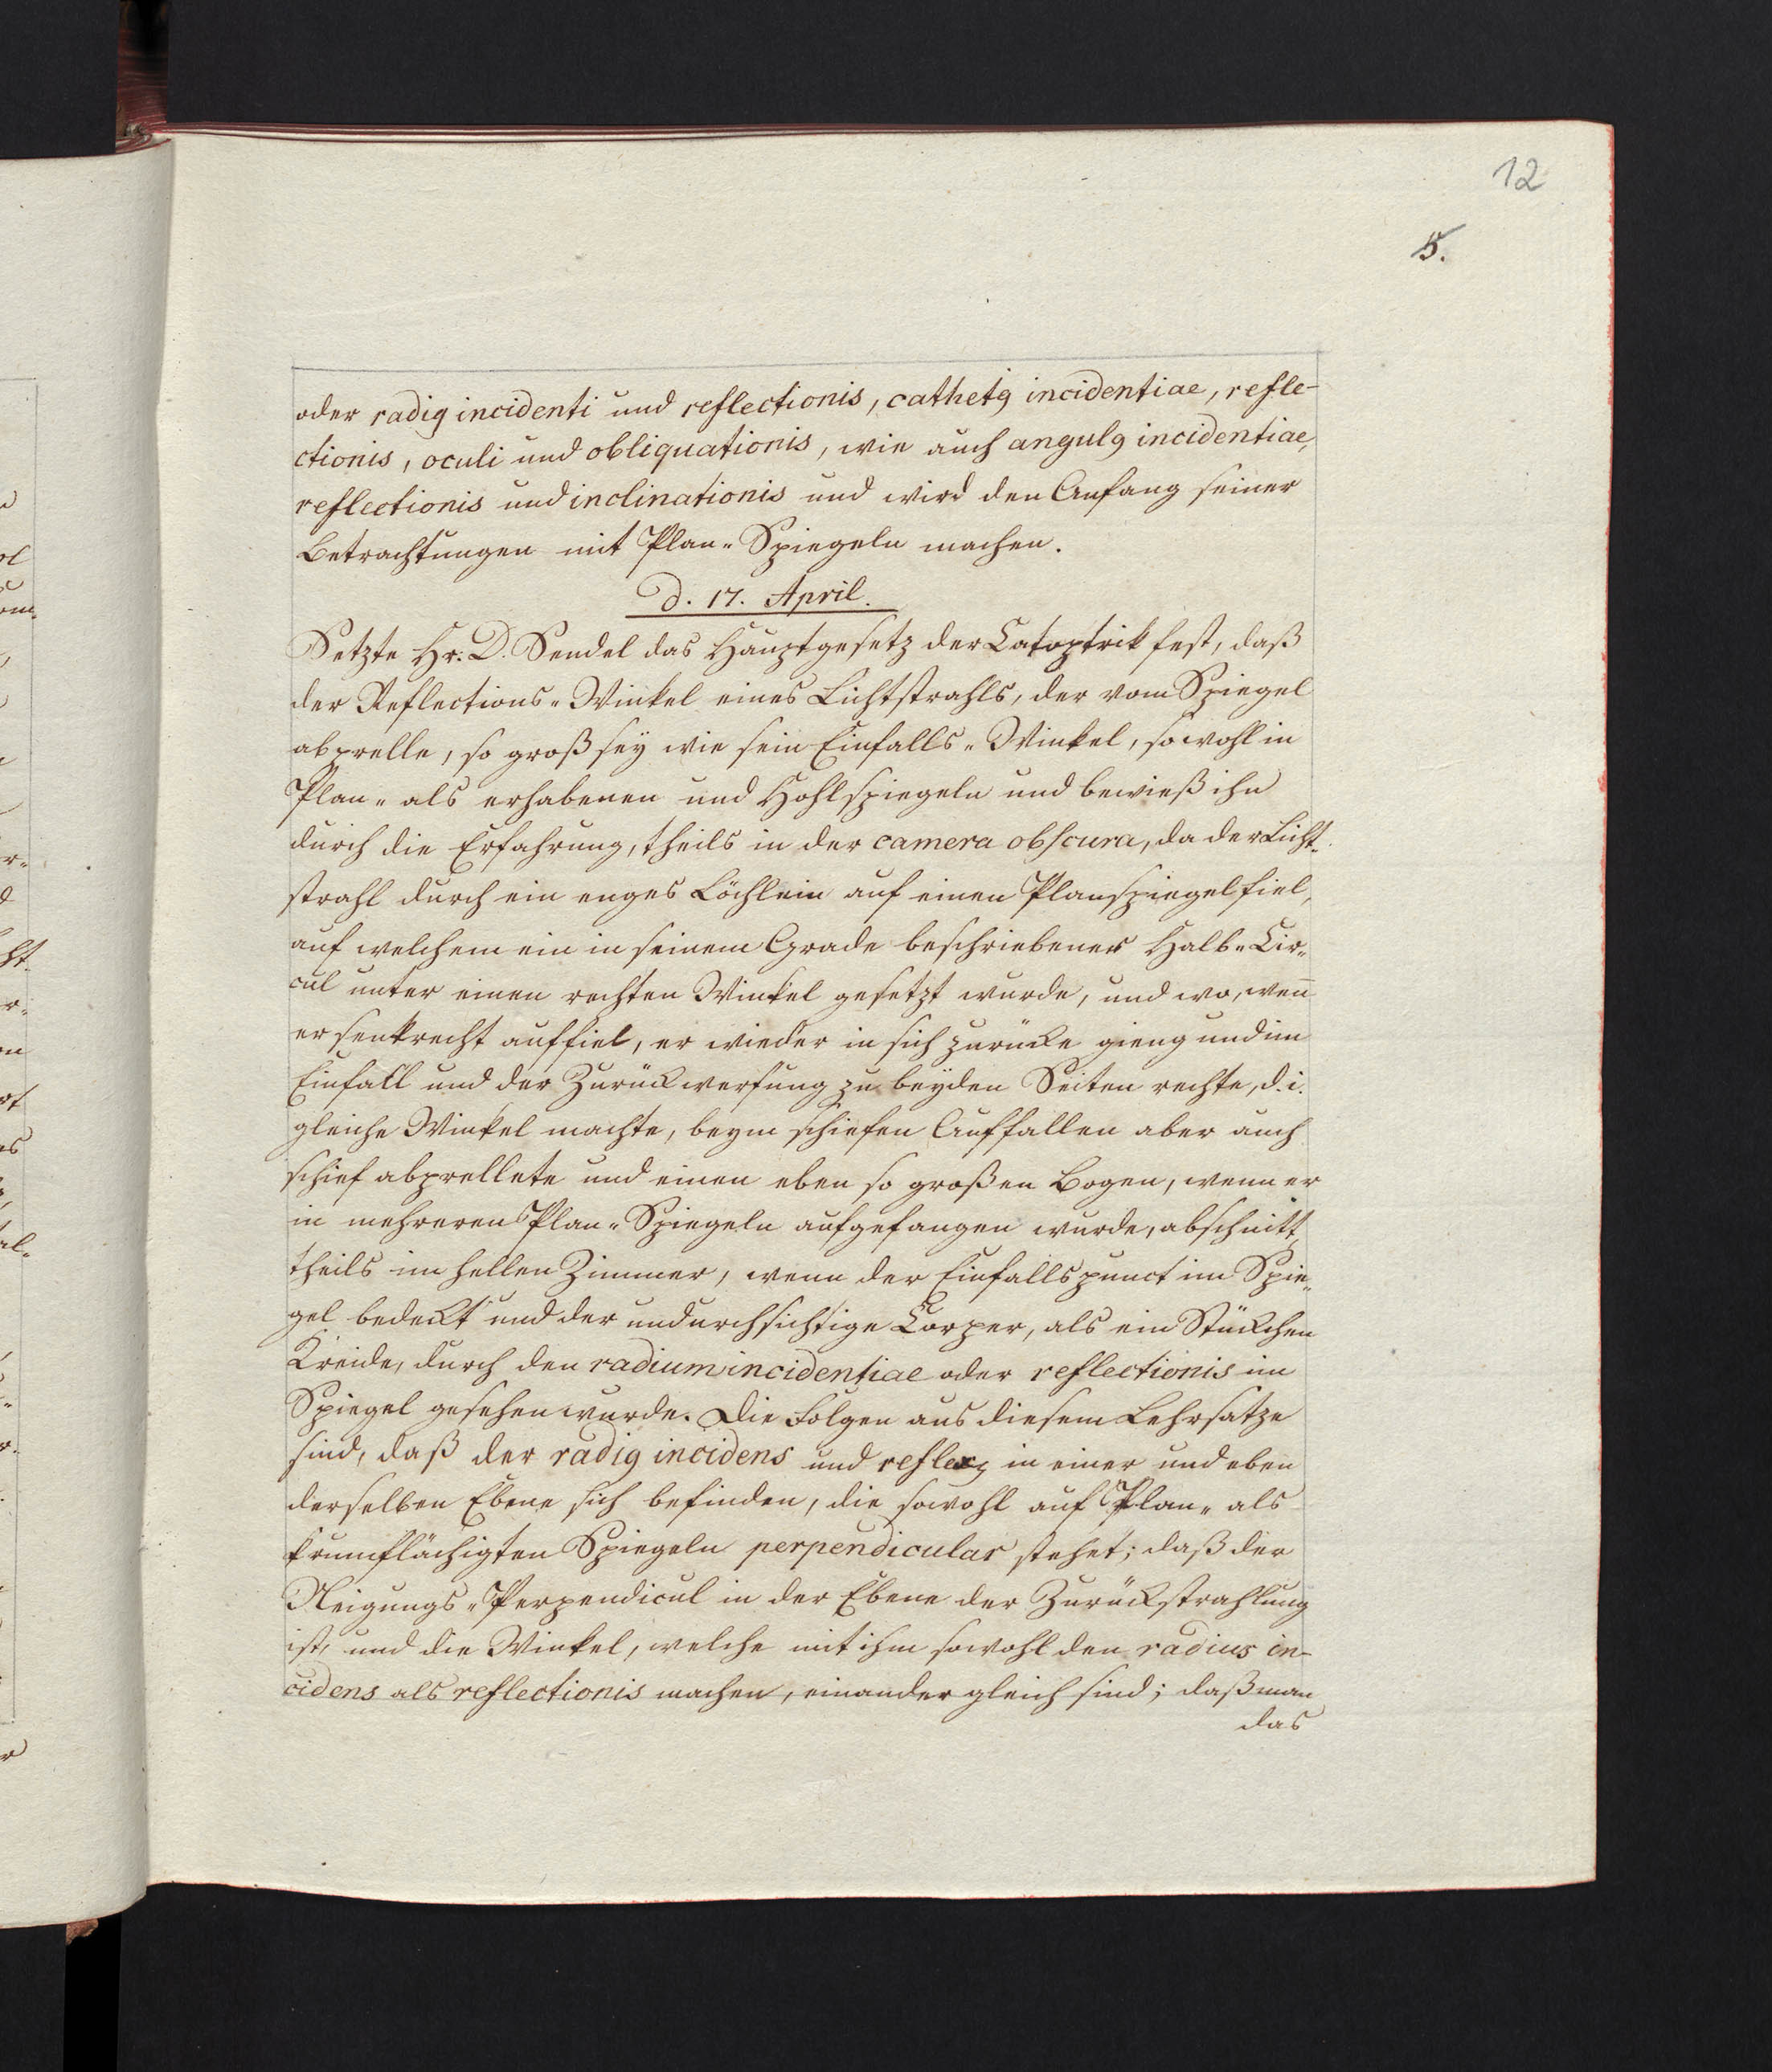 12
5.
oder radiꝰ incidenti und reflectionis, cathetꝰ incidentiae, refle-
ctionis, oculi und obliquationis, wie auch angulꝰ incidentiae,
reflectionis und inclinationis und wird den Anfang seiner
Betrachtungen mit Plan-Spiegeln machen.
d. 17. April.
Setzte Hr. D. Sendel das Hauptgesetz der Catoptrik fest, daß
der Reflections-Winkel eines Lichtstrahls, der vom Spiegel
abprelle, so groß sey wie sein Einfalls-Winkel, sowohl in
Plan- als erhabenen und Hohlspiegeln und bewieß ihn
durch die Erfahrung, theils in der camera obscura, da der Licht-
strahl durch ein enges Löchlein auf einen Planspiegel fiel,
auf welchem ein in seinem Grade beschriebener Halb-Cir-
cul unter einen rechten Winkel gesetzt wurde, und wo, wen̄
er senkrecht auffiel, er wieder in sich zurücke gieng und im
Einfall und der Zurückwerfung zu beyden Seiten rechte, d. i.
gleiche Winkel machte, beym schiefen Auffallen aber auch
schief abprellete und einen eben so großen Bogen, wenn er
in mehreren Plan-Spiegeln aufgefangen wurde, abschnitt,
theils im hellen Zimmer, wenn der Einfallspunct im Spie-
gel bedeckt und der undurchsichtige Cörper, als ein Stückchen
Kreide, durch den radium incidentiae oder reflectionis im
Spiegel gesehen wurde. Die Folgen aus diesem Lehrsatze
sind, daß der radiꝰ incidens und reflexꝰ in einer und eben
derselben Ebene sich befinden, die sowohl auf Plan- als
krumflächigten Spiegeln perpendicular stehet; daß der
Neigungs-Perpendicul in der Ebene der Zurückstrahlung
ist, und die Winkel, welche mit ihm sowohl den radius in-
cidens als reflectionis machen, einander gleich sind; daß man
das